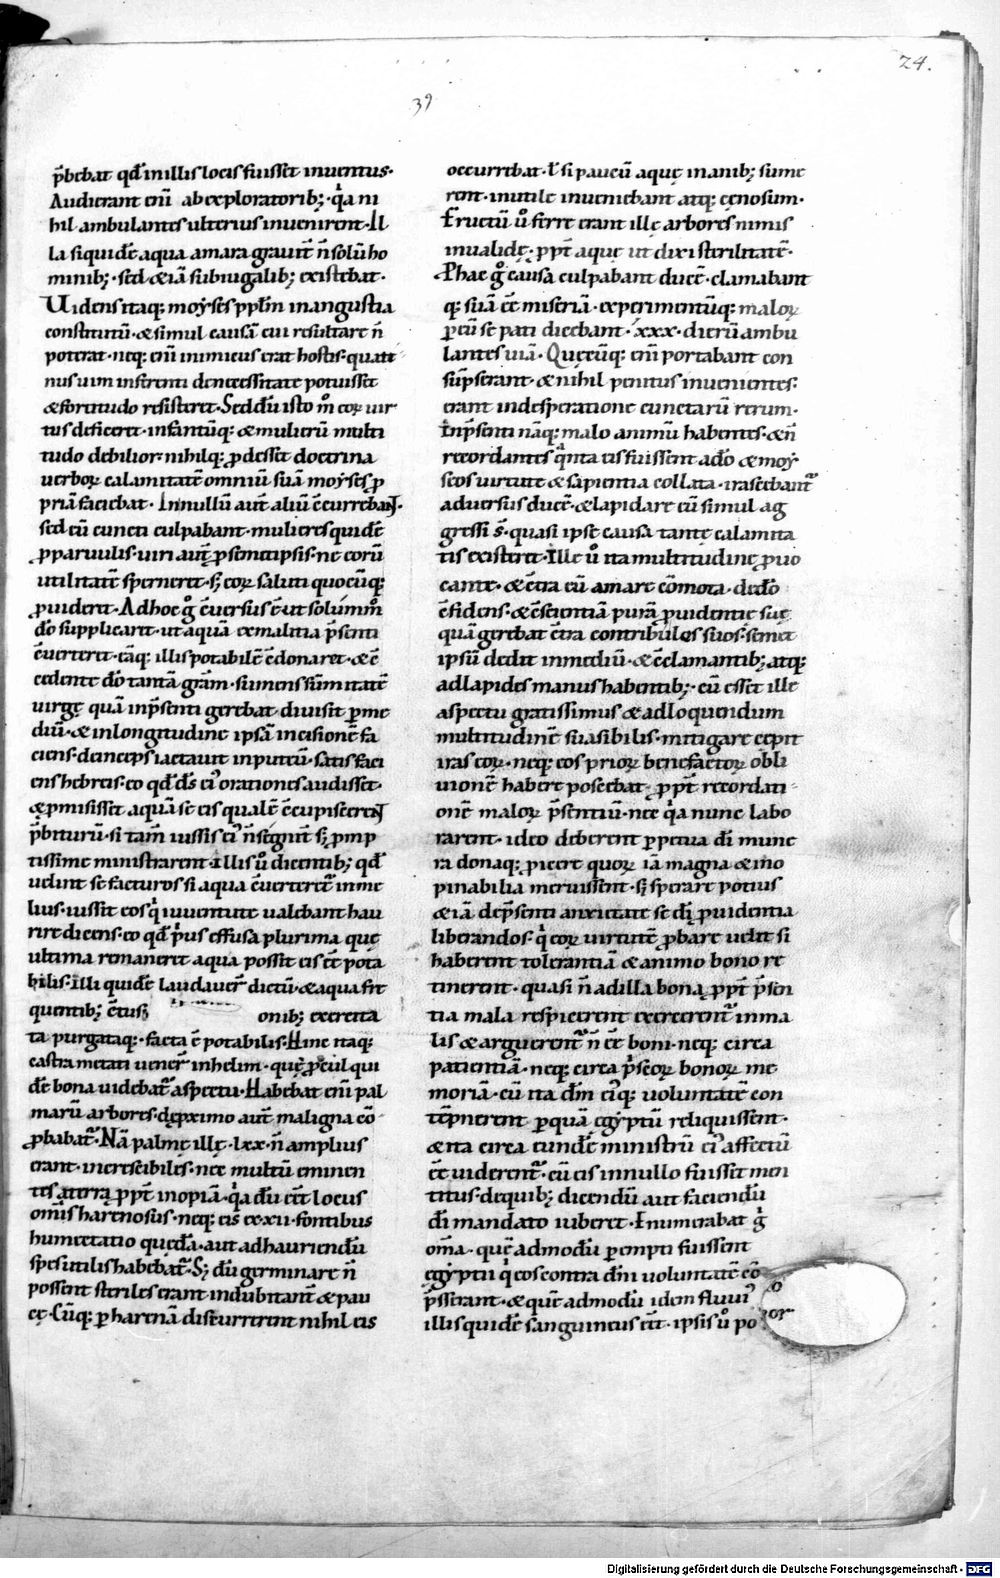 24.
39
p̄bebat qđ in illis locis fuisset inventus·
Audierant eni᷑ ab exploratorib;· qa ni
hil ambulantes ulterius invenirent· Il
la siquidē aqua amara gravit̄ n̄ solū ho
minib;· sed & iā subiugalib; existebat·
Uidens itaq; moẏses pplm̄ in angustia
constitutū· & simul causā cui resultare n̄
poterat· neq; eni᷑ inimicus erat hostis· quati
nus vim inferenti de necessitate potuisset
& fortitudo resistere· Sed dū isto m̊ eoꝝ vir
tus deficeret· infantūq; & mulierū multi
tudo debilior· nihilq; ꝓdesset doctrina
verboꝝ calamitatē omniū suā moẏses ꝓ
priā faciebat· In nullū aut̄ aliū c̄currebant·
sed eū cuncti culpabant· mulieres quidē
ꝓ parvulis· viri aut̄ ꝓ semetipsis· ne eorū
utilitatē sperneret· s; eoꝝ saluti quocūq;
ꝓvideret· Ad hoc g̊ c̄versus ē· ut solūm̊
dō supplicaret· ut aquā ex malitia p̄senti
c̄verteret· eāq; illis potabilē c̄donaret· & c̄
cedente dō tantā grām· sumens sūmitatē
virgę quā in p̄senti gerebat· divisit ꝑ me
diū· & in longitudine ipsā incisionē fa
ciens· deinceps iactavit in puteū· satisfaci
ens hebreis· eo qđ ds̄ ei᷒ orationes audisset·
& ꝓmisisset aquā se eis qualē c̄cupiscerent
p̄biturū· si tam̄ iussis ei᷒ n̄ segnit̄ s; ꝓmp
tissime ministrarent· Illis ů dicentib; qđ
velint se facturos si aqua c̄verteret᷑ in me
lius· iussit eos qi iuventute valebant hau
rire dicens· eo qđ pi᷒us effusa plurima quę
ultima remaneret aqua possit eis ēē pota
bilis· Illi quidē laudaver̄ dictū· & aqua fre
quentib; c̄tus; onib; exercita
ta purgataq;· facta ē potabilis· Hinc itaq;
castra metati vener̄ in helim· quę ꝓcul qui
dē bona videbat᷑ aspectu· Habebat eni᷑ pal
marū arbores· de ꝓximo aut̄ maligna cō
ꝓbabat᷑· Nā palmę illę· lxx· n̄ amplius
erant· increscibiles· nec multū eminen
tes a terra ꝓpt̄ inopiā· qa dū ēēt locus
om̄is harenosus· neq; eis ex·xii· fontibus
humectatio quedā· aut ad hauriendū
spes utilis habebat᷑· S; dū germinare n̄
possent steriles erant indubitant̄ & pau
cę· Cūq; ꝑ harenā discurrerent nihil eis
occurrebat· ł si paucū aquę in manib; sume
rent· inutile inveniebant atq; cęnosum·
Fructū ů ferre erant illę arbores nimis
invalidę· ꝓpt̄ aquę ut dixi sterilitatē·
P hac g̊ causa culpabant ducē· clamabant
q; suā ēē miseriā· experimentūq; maloꝝ
ꝑ eū se pati dicebant· xxx· dierū ambu
lantes viā· Quęcūq; eni᷑ portabant con
sūpserant· & nihil penitus invenientes·
erant in desperatione cunctarū rerum·
In p̄senti nāq; malo animū habentes· & n̄
recordantes qanta eis fuissent a dō & moẏ
seos virtute & sapientia collata· irascebant᷑
adversus ducē· & lapidare eū simul ag
gressi s̄· quasi ipse causa tantę calamita
tis existeret· Ille ů ita multitudine ꝓvo
cante· & c̄tra eū amare cōmota· de dō
c̄fidens· & c̄scientiā purā ꝓvidentię suę
quā gerebat c̄tra contribules suos· semet
ipsū dedit in mediū· & c̄clamantib; atq;
ad lapides manus habentib;· cū esset ille
aspectu gratissimus & ad loquendum
multitudinē suasibilis· mitigare cepit
iras eoꝝ· neq; eos prioꝝ benefactoꝝ obli
vionē habere poscebat· ꝓpt̄ recordati
onē maloꝝ p̄sentiū· nec qa nunc labo
rarent· ideo deberent ꝓpet̄ua dī mune
ra donaq; ꝓicere quoꝝ iā magna & ino
pinabilia meruissent· s; sperare potius
& iā de p̄senti anxietate se dī ꝓvidentia
liberandos· qi eoꝝ virtutē ꝓbare velit si
haberent tolerantiā & animo bono re
tinerent· quasi n̄ ad illa bona ꝓpt̄ p̄sen
tia mala respicerent exercerent᷑ in ma
lis & arguerent᷑ n̄ ēē boni· neq; circa
patientiā· neq; circa p̄seoꝝ bonoꝝ me
moriā· cū ita dm̄ ei᷒q; voluntatē con
tēpnerent ꝑ quā egẏptū reliquissent·
& ita circa eundē ministrū ei᷒ affectū
ēē viderent᷑· cū eis in nullo fuisset men
titus· de quib; dicendū aut faciendū
dī mandato iuberet· Enumerabat g̊
om̄a· quē admodū ꝑempti fuissent
egẏptii qi eos contra dm̄ voluntatē cō
p̄sserant· & quē admodū idem fluvi᷒
illis quidē sanguineus ēēt· ipsis ů po
Digitalisierung gefördert durch die Deutsche Forschungsgemeinschaft - DFG